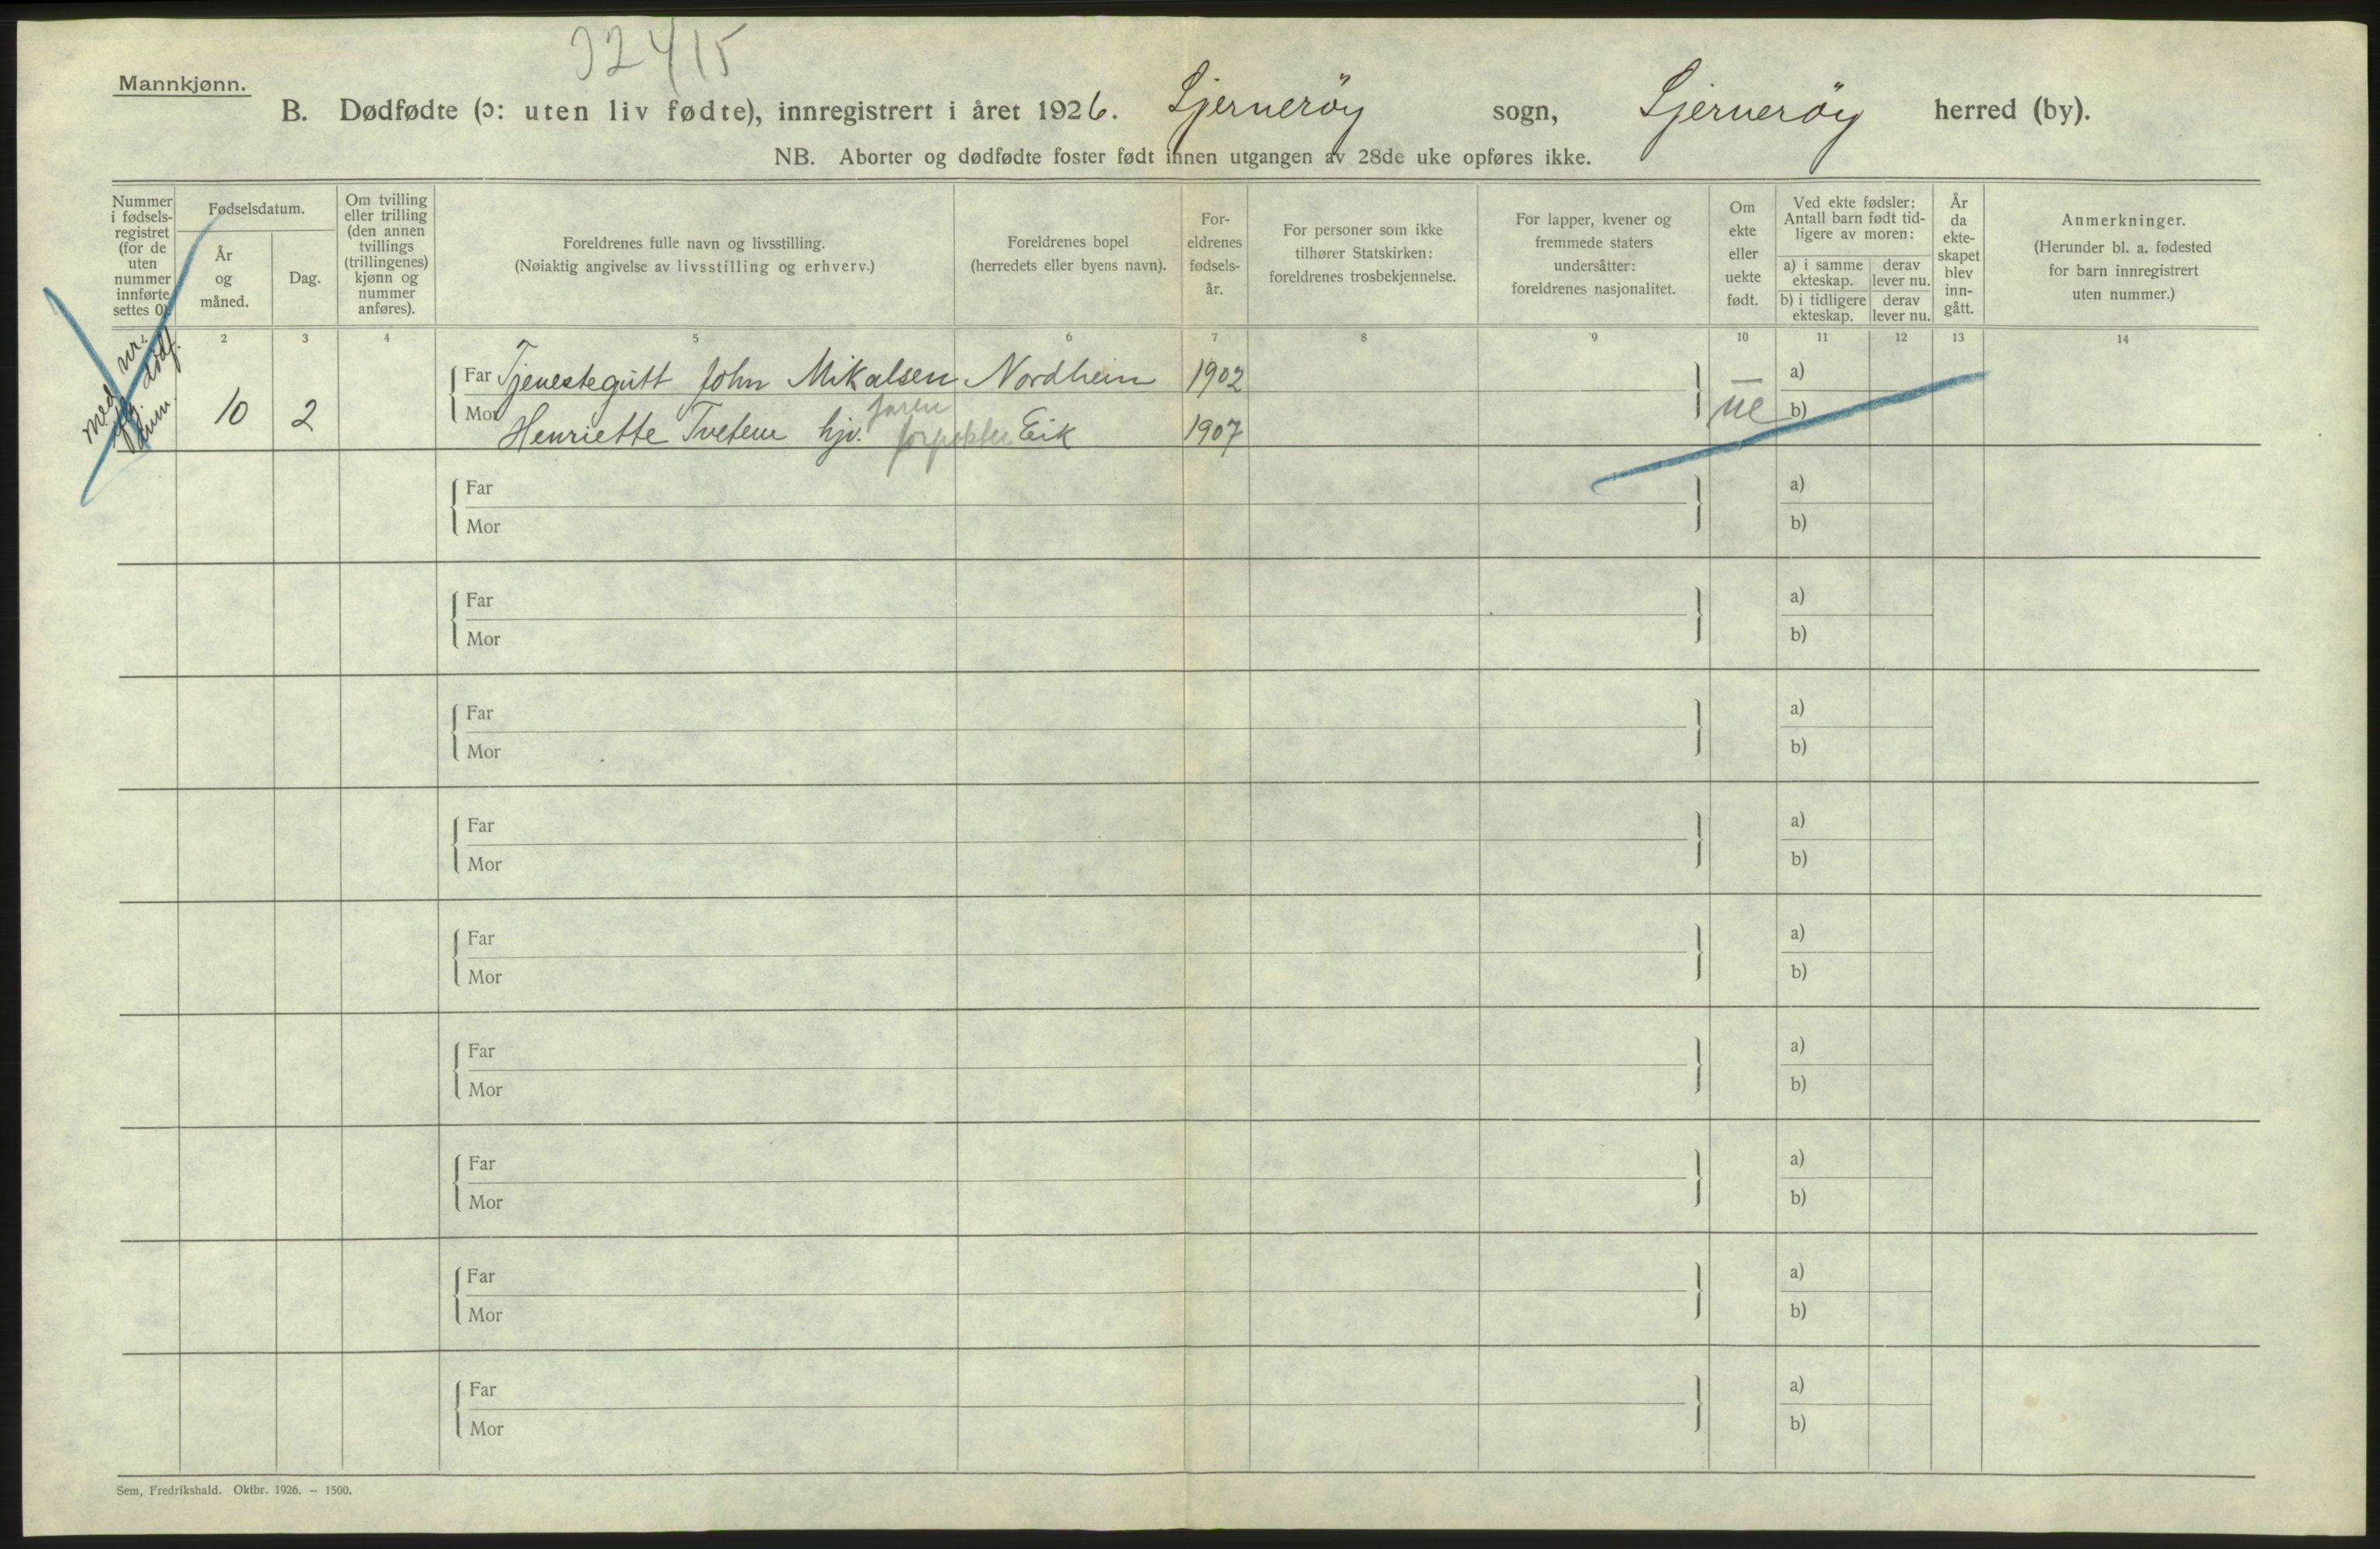 32415
Mannkjønn.
B. Dødfødte (ɔ: uten liv fødte), innregistrert i året 1926. Sjernerøy sogn, Sjernerøy herred (by).
NB. Aborter og dødfødte foster født innen utgangen av 28de uke opføres ikke.
Nummer i fødsels-registret (for de uten nummer innførte settes 0).
Fødselsdatum.
År og måned.
Dag.
Om tvilling eller trilling (den annen tvillings (trillingenes) kjønn og nummer anføres).
Foreldrenes fulle navn og livsstilling.
(Nøiaktig angivelse av livsstilling og erhverv.)
Foreldrenes bopel
(herredets eller byens navn).
For-eldrenes fødsels-år.
For personer som ikke tilhører Statskirken: foreldrenes trosbekjennelse.
For lapper, kvener og fremmede staters undersåtter: foreldrenes nasjonalitet.
Om ekte eller uekte født.
Ved ekte fødsler: Antall barn født tid-ligere av moren:
a) i samme ekteskap.
derav lever nu.
b) i tidligere ekteskap.
derav lever nu.
År da ekte-skapet blev inn-gått.
Anmerkninger.
(Herunder bl. a. fødested for barn innregistrert uten nummer.)
1. 2 3 4 5 6 7 8 9 10 11 12 13 14
med nr.
dødf.
Far Tjenestegutt John Mikalsen Nordheim 1902 — a)
10 2
faren
Mor Henriette Tveten hjv. Eik 1907 ue b)
Far a)
Mor b)
Far a)
Mor b)
Far a)
Mor b)
Far a)
Mor b)
Far a)
Mor b)
Far a)
Mor b)
Far a)
Mor b)
Far a)
Mor b)
Far a)
Mor b)
Sem, Fredrikshald. Oktbr. 1926. – 1500.